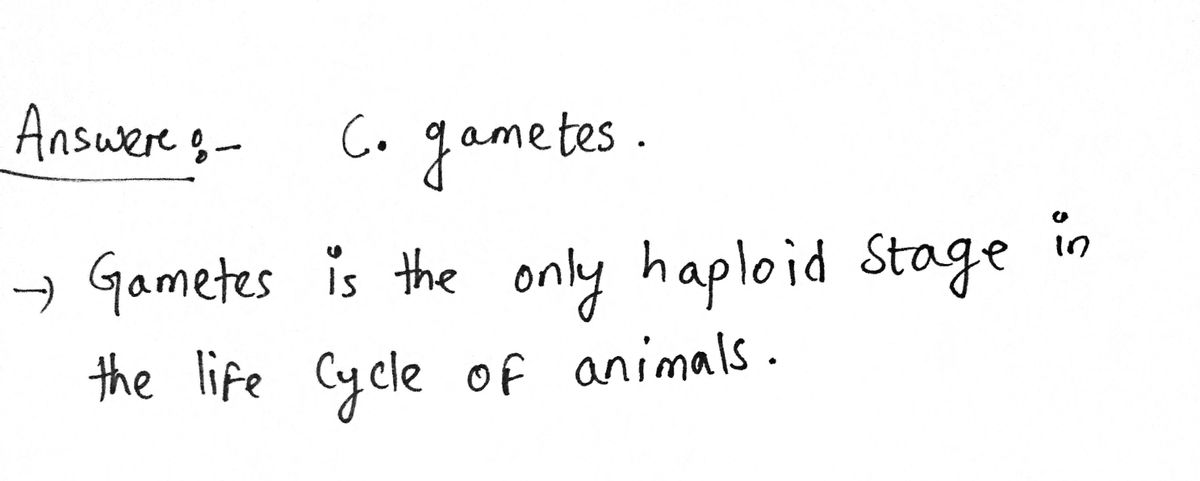 Answere :- C. gametes.
→ Gametes is the only haploid stage in
the life cycle of animals.